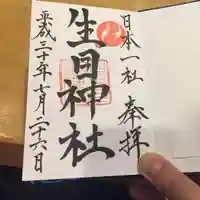 奉拝
日本一社
生田神社
平成三十年七月二十六日